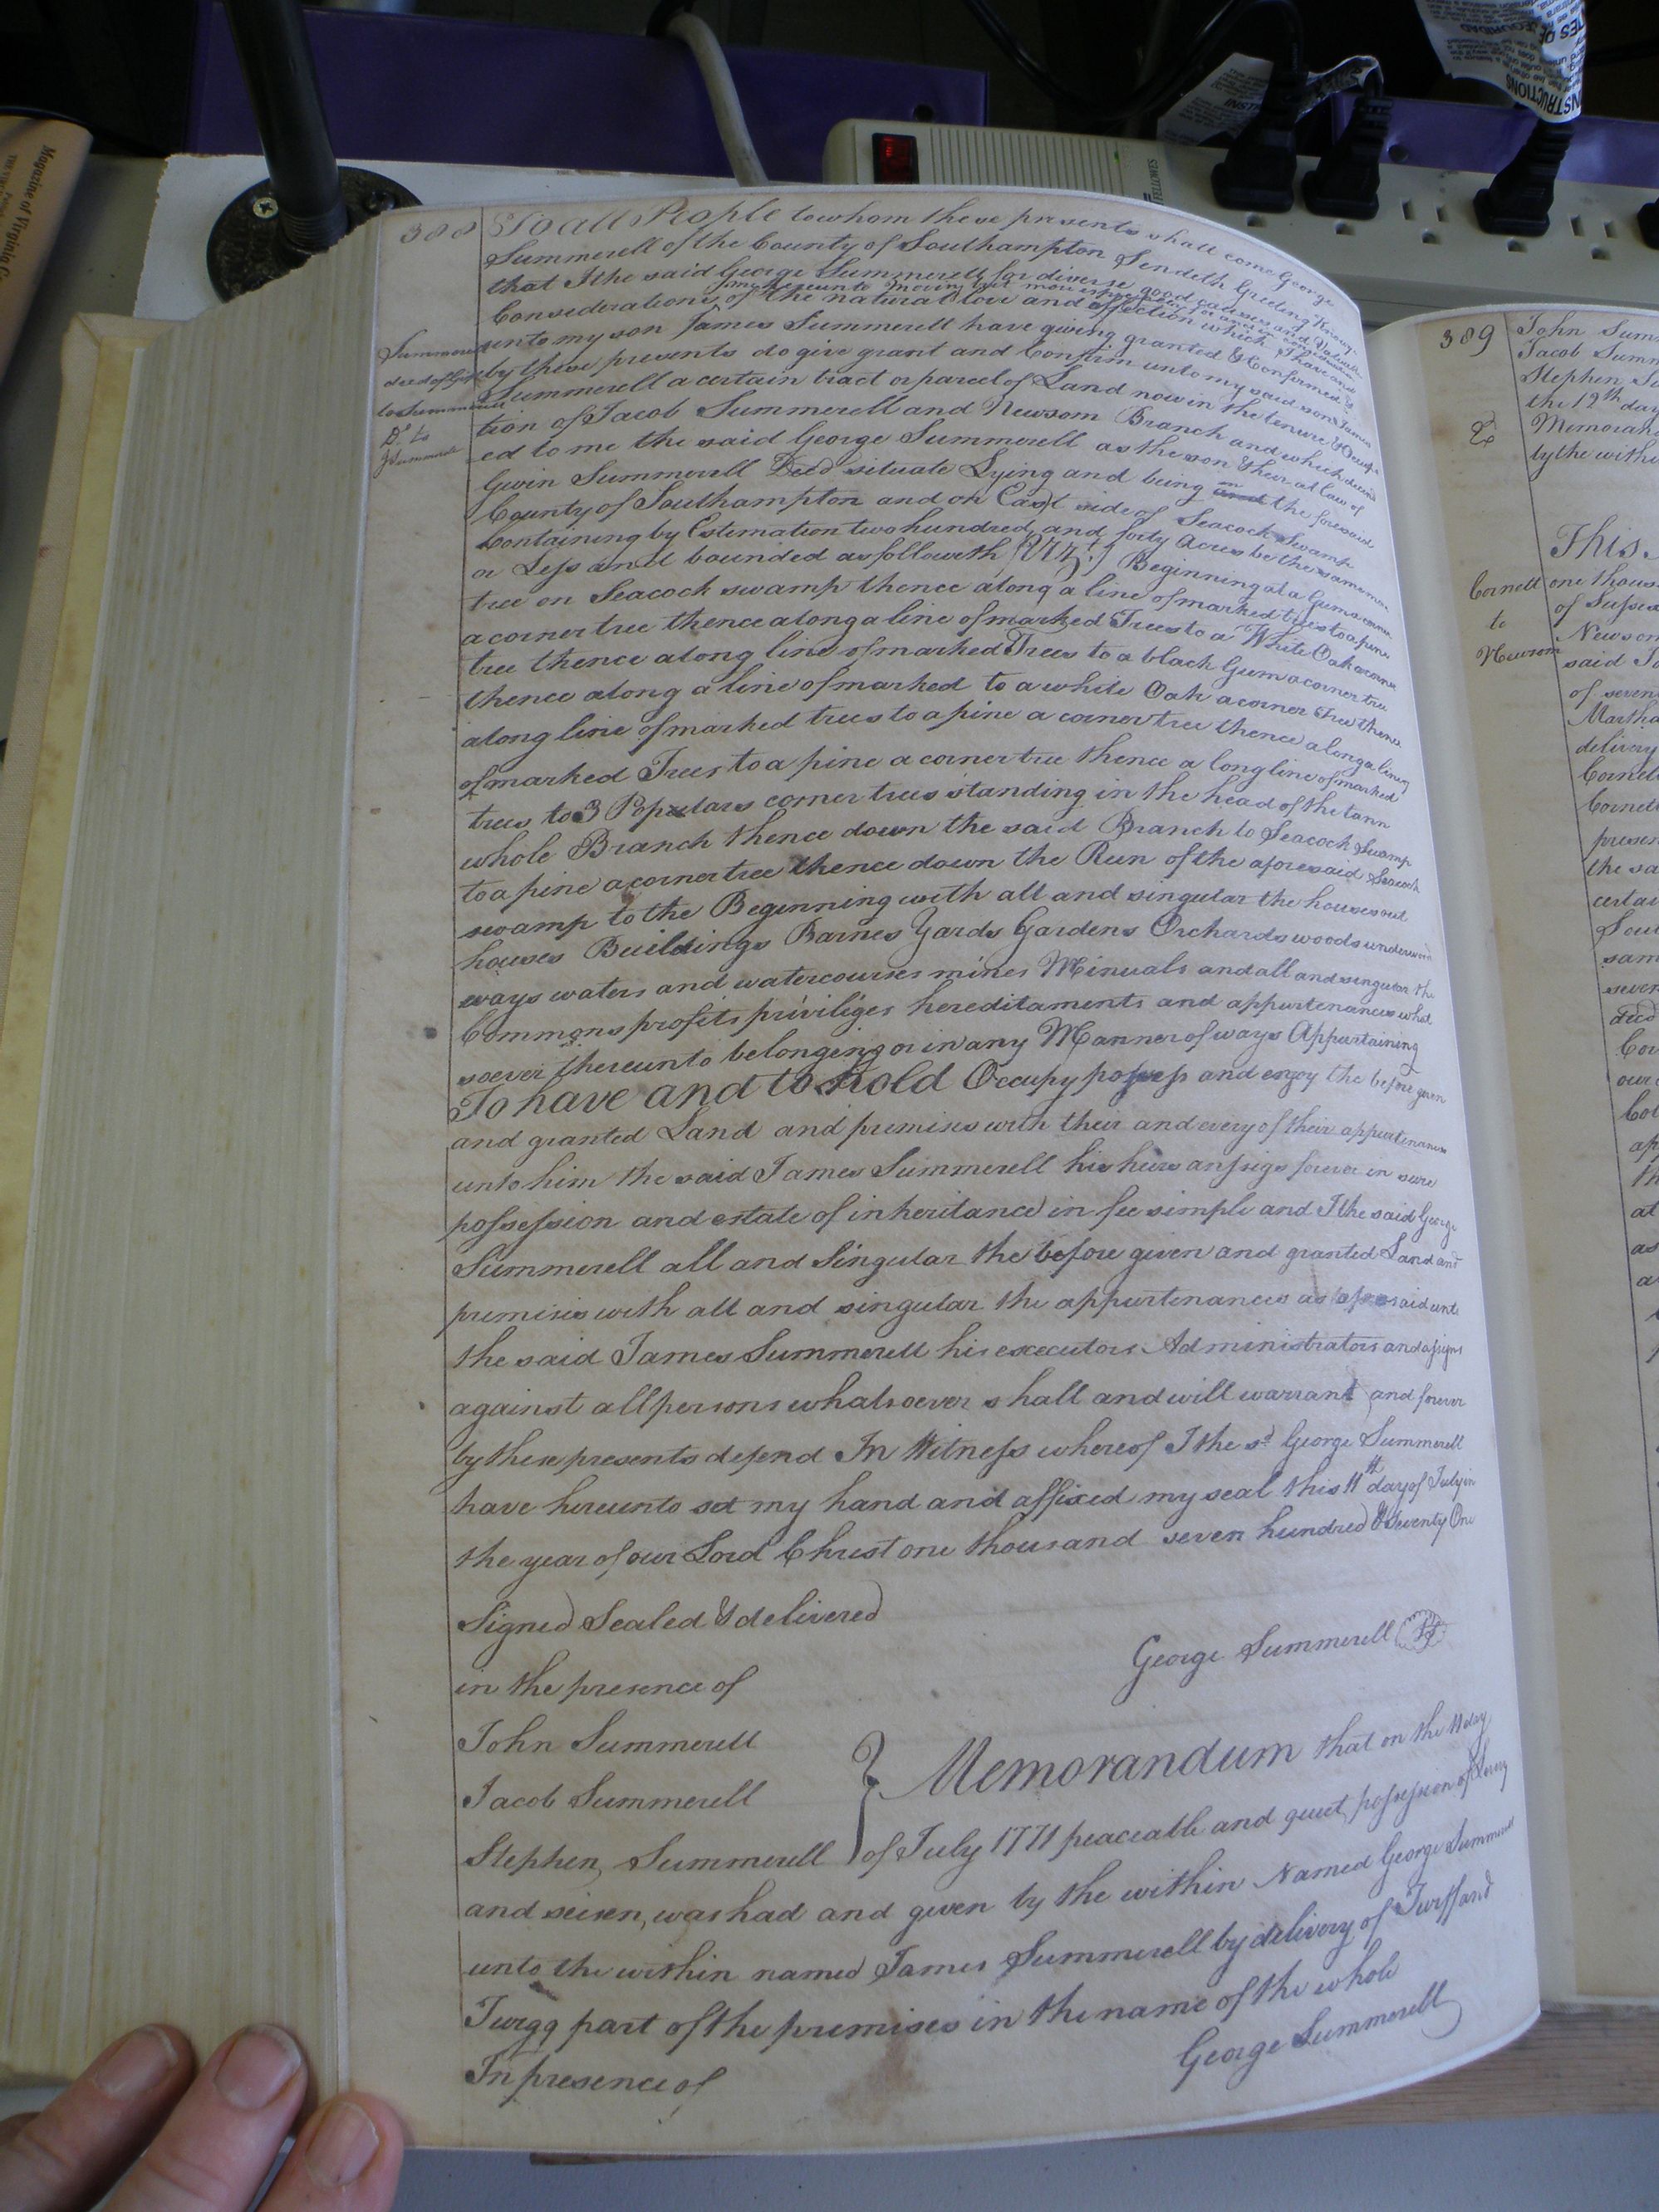 388 To all People to whom these presents shall come George
Summerell of the County of Southampton Sendeth Greeting Know
that I the said George Summerell for diverse good causes and Valuable
Considerations me hereunto moving but more especially for and in consideration
of the natural love and affection which I have and
unto my son James Summerell have giving granted & Confirmed &
by these presents do give grant and Confirm unto my said son James
Summerell a certain tract or parcel of Land now in the tenure & Occupa
tion of Jacob Summerell and Newsom Branch and which
ed to me the said George Summerell as the son & heir at law of
Gwin Summerell Decd situate Lying and being in the foresaid
County of Southampton and on East side of Seacock Swamp
Containing by Estemation two hundred and forty Acres be the same more
or Less and bounded as followeth (Vizt.) Beginning at a Gum a corner
tree on Seacock swamp thence along a line of marked trees to a pine
a corner tree thence along a line of marked Trees to a White Oak a corner
tree thence along line of marked Trees to a black Gum a corner tree
thence along a line of marked to a white Oak a corner Tree thence
along line of marked trees to a pine a corner tree thence along a line
of marked Trees to a pine a corner tree thence a long line of marked
trees to 3 Populars corner trees standing in the head of the tann
whole Branch thence down the said Branch to Seacock Swamp
to a pine a corner tree thence down the Run of the aforesaid Seacock
swamp to the Beginning with all and singular the houses out
houses Buildings Barnes Yards Gardens Orchards woods underwood
ways waters and watercourses mines Minuals and all and singular the
Commons profits priviliges hereditaments and appurtenances what
soever thereunto belonging or in any Manner of ways Appurtaining
To have and to hold Occupy possess and enjoy the before given
and granted Land and premises with their and every of their appurtenances
unto him the said James Summerell his heirs an assigs forever in sure
possession and estate of inheritance in fee simple and I the said George
Summerell all and Singular the before given and granted Land and
premises with all and singular the appurtenances as aforesaid unto
the said James Summerell his executors Administrators and assigns
against all persons whatsoever shall and will warrant and forever
by these presents defend In Witness whereof I the sd George Summerell
have hereunto set my hand and affixed my seal this 11th day of July in
the year of our Lord Christ one thousand seven hundred & Seventy One
Signed Sealed & delivered
in the presence of
George Summerell
John Summerell
Jacob Summerell
Stephen Summerell
Memorandum that on the 11 day
of July 1771 peaceable and quiet possession of
and seisen, was had and given by the within Named George Summerell
unto the within named James Summerell by delivery of Turff and
Twigg part of the premises in the name of the whole
George Summerell
In presence of
Summerell
deed of Gift
to Summerell
Do to
389
John Sum
Jacob Summ
Stephen Su
the 12th day
Memorand
by the with
This
Cornell
to
Newsom
one thous
of Sussex
Newsom
said Jo
of seven
Martha
delivery
Cornell
Cornell
presen
the sa
certai
Sout
sam
seven
our
at
as
Magazine of Virginia
FELLOWES
INSTRUCTIONS